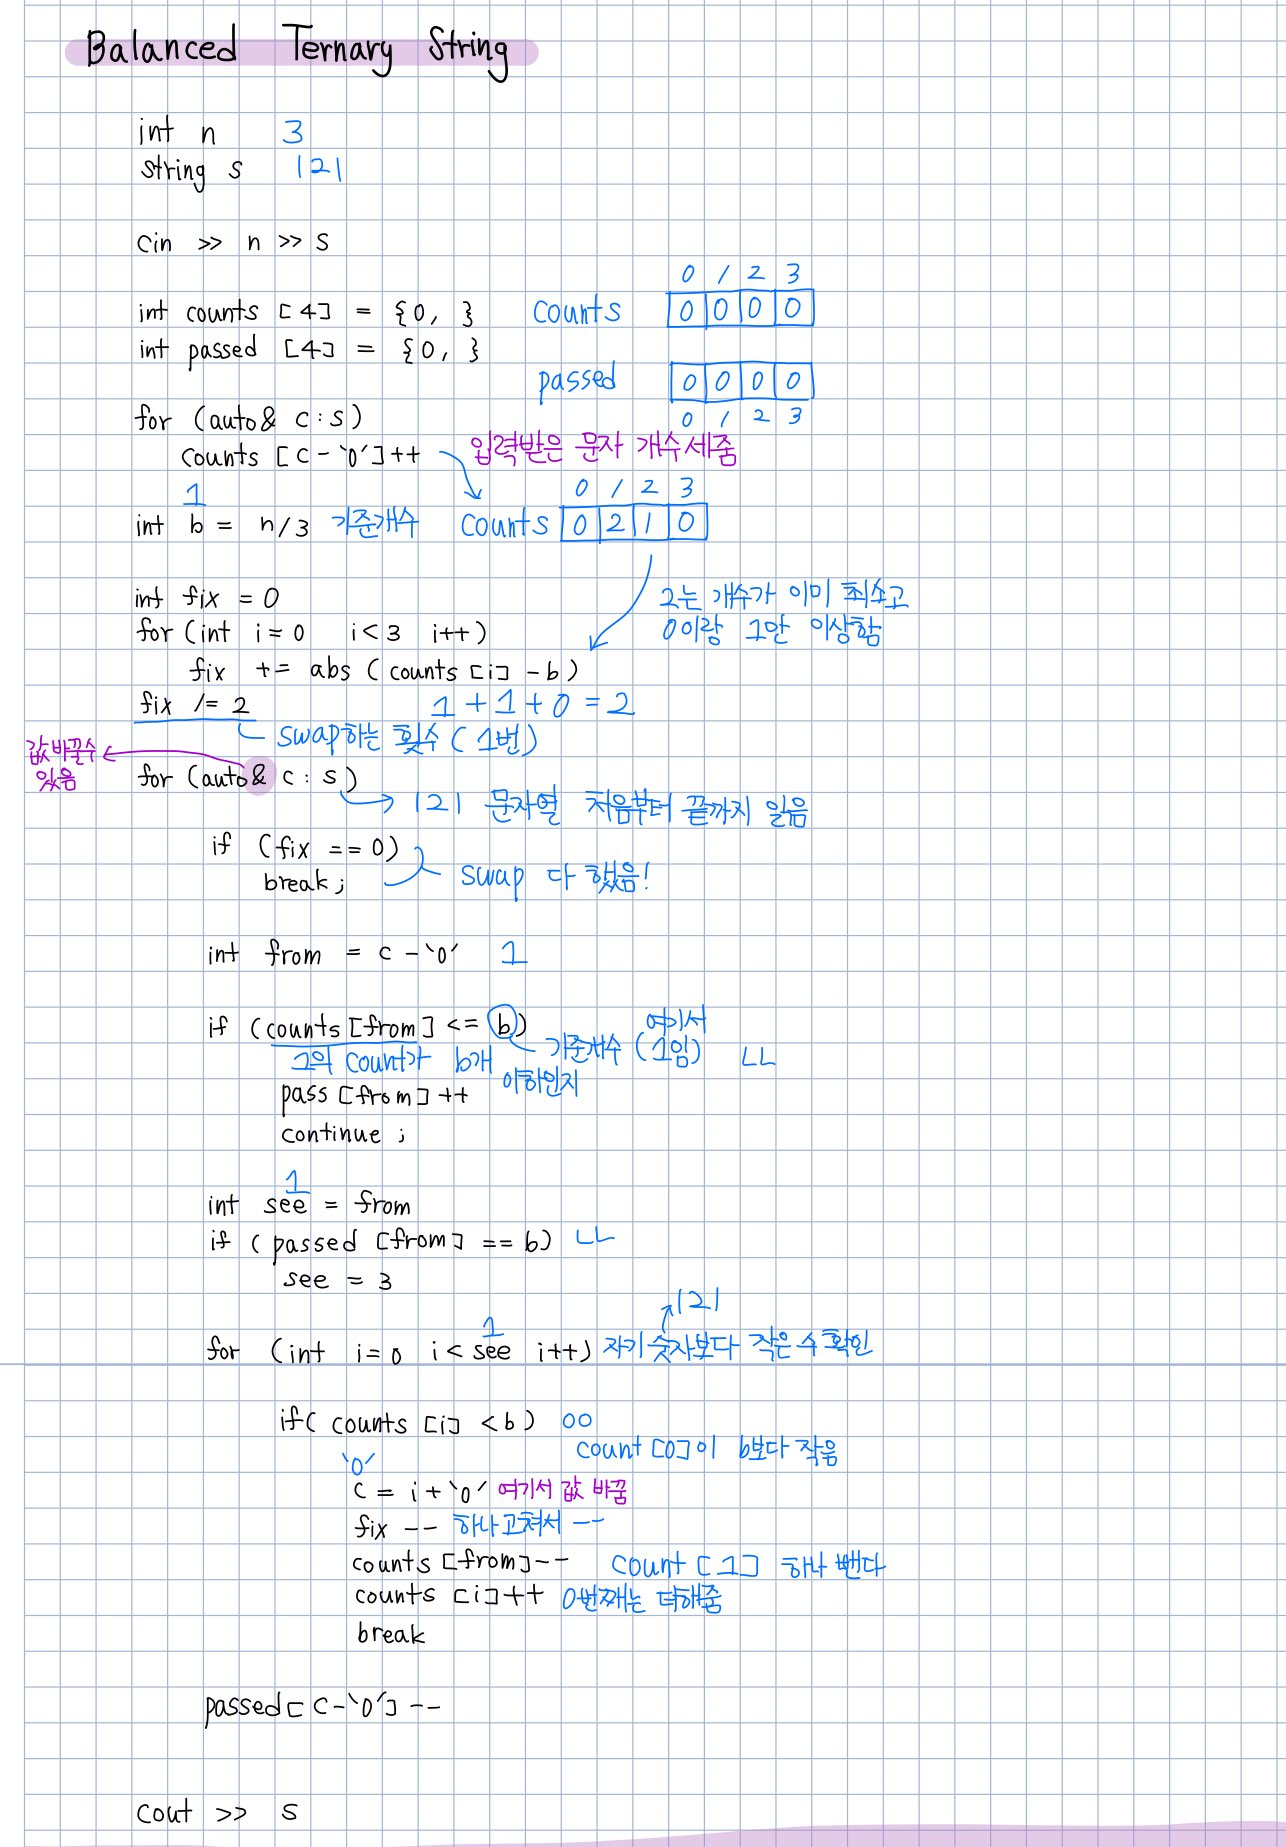 Balanced Ternary String
int n 3
string s 121
cin >> n >> s
0 1 2 3
int counts [4] = {0, } counts 0 0 0 0
int passed [4] = {0, }
passed 0 0 0 0
for (auto& c : s) 0 1 2 3
counts [c - '0']++ 입력받은 문자 개수세줌
1 0 1 2 3
int b = n/3 기준개수 counts 0 2 1 0
int fix = 0 2는 개수가 이미 최소고
for (int i=0 i<3 i++) 0이랑 1만 이상함
fix += abs (counts [i] - b)
fix /= 2 1+1+0=2
swap하는 횟수 (1번)
값바꿀수
있음
for (auto& c : s)
121 문자열 처음부터 끝까지 읽음
if (fix == 0)
break; swap 다 했음!
int from = c - '0' 1
if (counts [from] <= b) 여기서
그의 count가 b개 기준개수 (1임) ㄴㄴ
이하인지
pass [from]++
continue;
1
int see = from
if (passed [from] == b) ㄴㄴ
see = 3
121
1
for (int i=0 i< see i++) 자기 숫자보다 작은 수 확인
if( counts [i] < b) ㅇㅇ
count [0]이 b보다 작음
'0'
c = i + '0' 여기서 값 바꿈
fix -- 하나고쳐서 --
counts [from]-- count [1] 하나 뺀다
counts [i]++ 0번째는 더해줌
break
passed [c - '0'] --
cout >> s